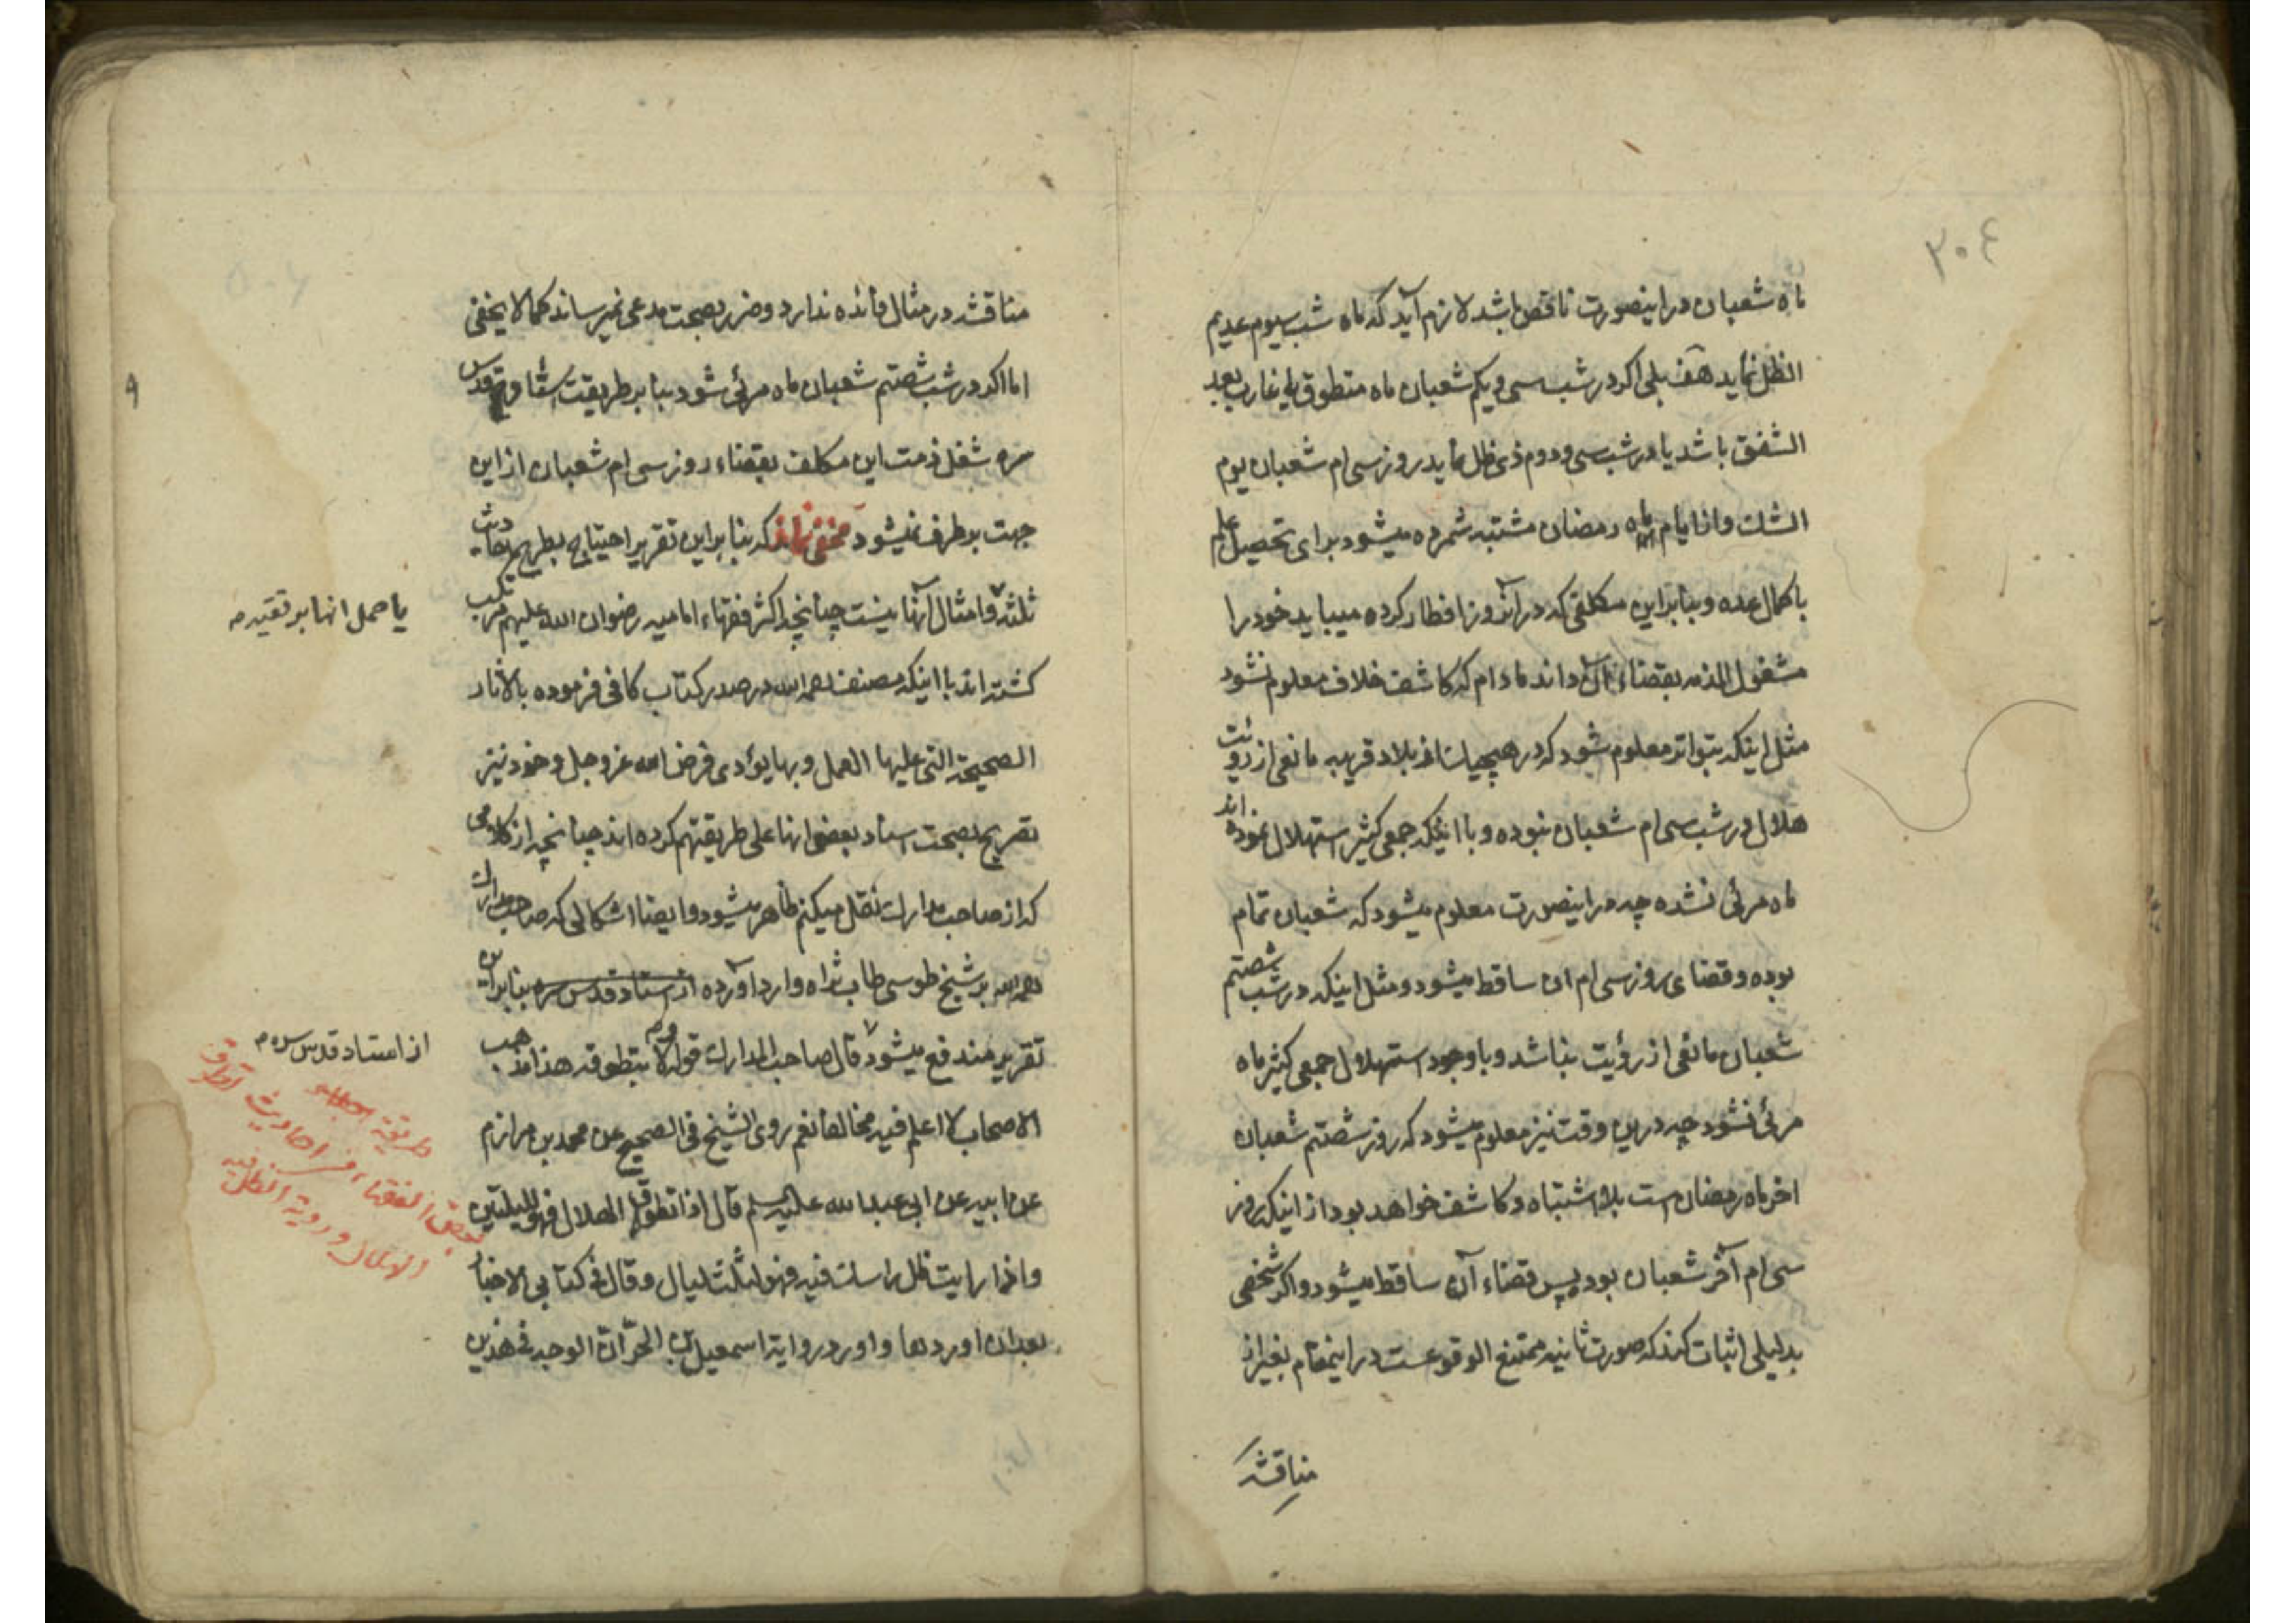 ۳۰٤
ماه شعبان در اینصورت ناقص باشد لازم آید که ماه شب سیوم عدیم
الظل نماید هف بلی اگر در شب سی و یکم شعبان ماه متطوق یا غارب بعد
الشفق باشد یا در شب سی و دوم ذی ظل نماید روز سی ام شعبان یوم
الشک و از ایام ماه رمضان مشتبه شمرده میشود برای تحصیل علم
باکمال عده و بنابراین مکلفی که در آنروز افطار کرده میباید خود را
مشغول الذمه بقضاء آن داند مادام که کاشف خلاف معلوم نشود
مثل اینکه بتواتر معلوم شود که در هیچیک از بلاد قریبه مانعی از رویت
هلال در شب سی ام شعبان نبوده و با اینکه جمعی کثیر استهلال نموده اند
ماه مرئی نشده چه در اینصورت معلوم میشود که شعبان تمام
بوده و قضای روز سی ام ان ساقط میشود و مثل اینکه در شب شصتم
شعبان مانعی از رؤیت نباشد و باوجود استهلال جمعی کثیر ماه
مرئی نشود چه درین وقت نیز معلوم میشود که روز شصتم شعبان
اخر ماه رمضان است بلا اشتباه و کاشف خواهد بود از اینکه روز
سی ام آخر شعبان بود پس قضاء آن ساقط میشود و اگر شخصی
بدلیلی اثبات کند که صورت ثانیه ممتنع الوقوعست در اینمقام بغیر از
مناقشه
مناقشه در مثال فائده ندارد و ضرر بصحت مدعی نمیرساند کما لا یخفی
اما اگر در شب شصتم شعبان ماه مرئی شود بنا بر طریقت استاد قدس
سره شغل ذمت این مکلف بقضاء روز سی ام شعبان از این
جهت برطرف نمیشود مخفی نماند که بنابراین تقریر احتیاج بطرح احادیث
ثلثه و امثال آنها نیست چنانچه اکثر فقهاء امامیه رضوان الله علیهم مرتکب
گشته اند با اینکه مصنف رحمه الله در صدر کتاب کافی فرموده بالآثار
الصحیحة التی علیها العمل و بها یؤدی فرض الله عز و جل و خود نیز
تصریح بصحت اسناد بعضی انها علی طریقتهم کرده اند چنانچه از کلامی
که از صاحب مدارک نقل میکنم ظاهر میشود و ایضا اشکالی که صاحب مدارک
رحمه الله بر شیخ طوسی طاب ثراه وارد آورده از استاد قدس سره بنا براین
تقریر مندفع میشود قال صاحب المدارک قوله و لا بتطوقه هذا مذهب
الاصحاب لا اعلم فیه مخالفا نعم روی الشیخ فی الصحیح عن محمد بن مرازم
عن ابیه عن ابی عبدالله علیه السلم قال اذا تطوق الهلال فهو لليلتین
و اذا رایت ظل راسک فیه فهو لثلث لیال و قال فی کتابی الاخبار
بعد ان اوردها و اورد روایة اسمعیل بن الحر ان الوجه فی هذین
یا حمل انها بر تقیه م
از استاد قدس سره م
طریقة
بعض الفقهاء فی احادیث تطوق
الهلال و رویة الظل فیه